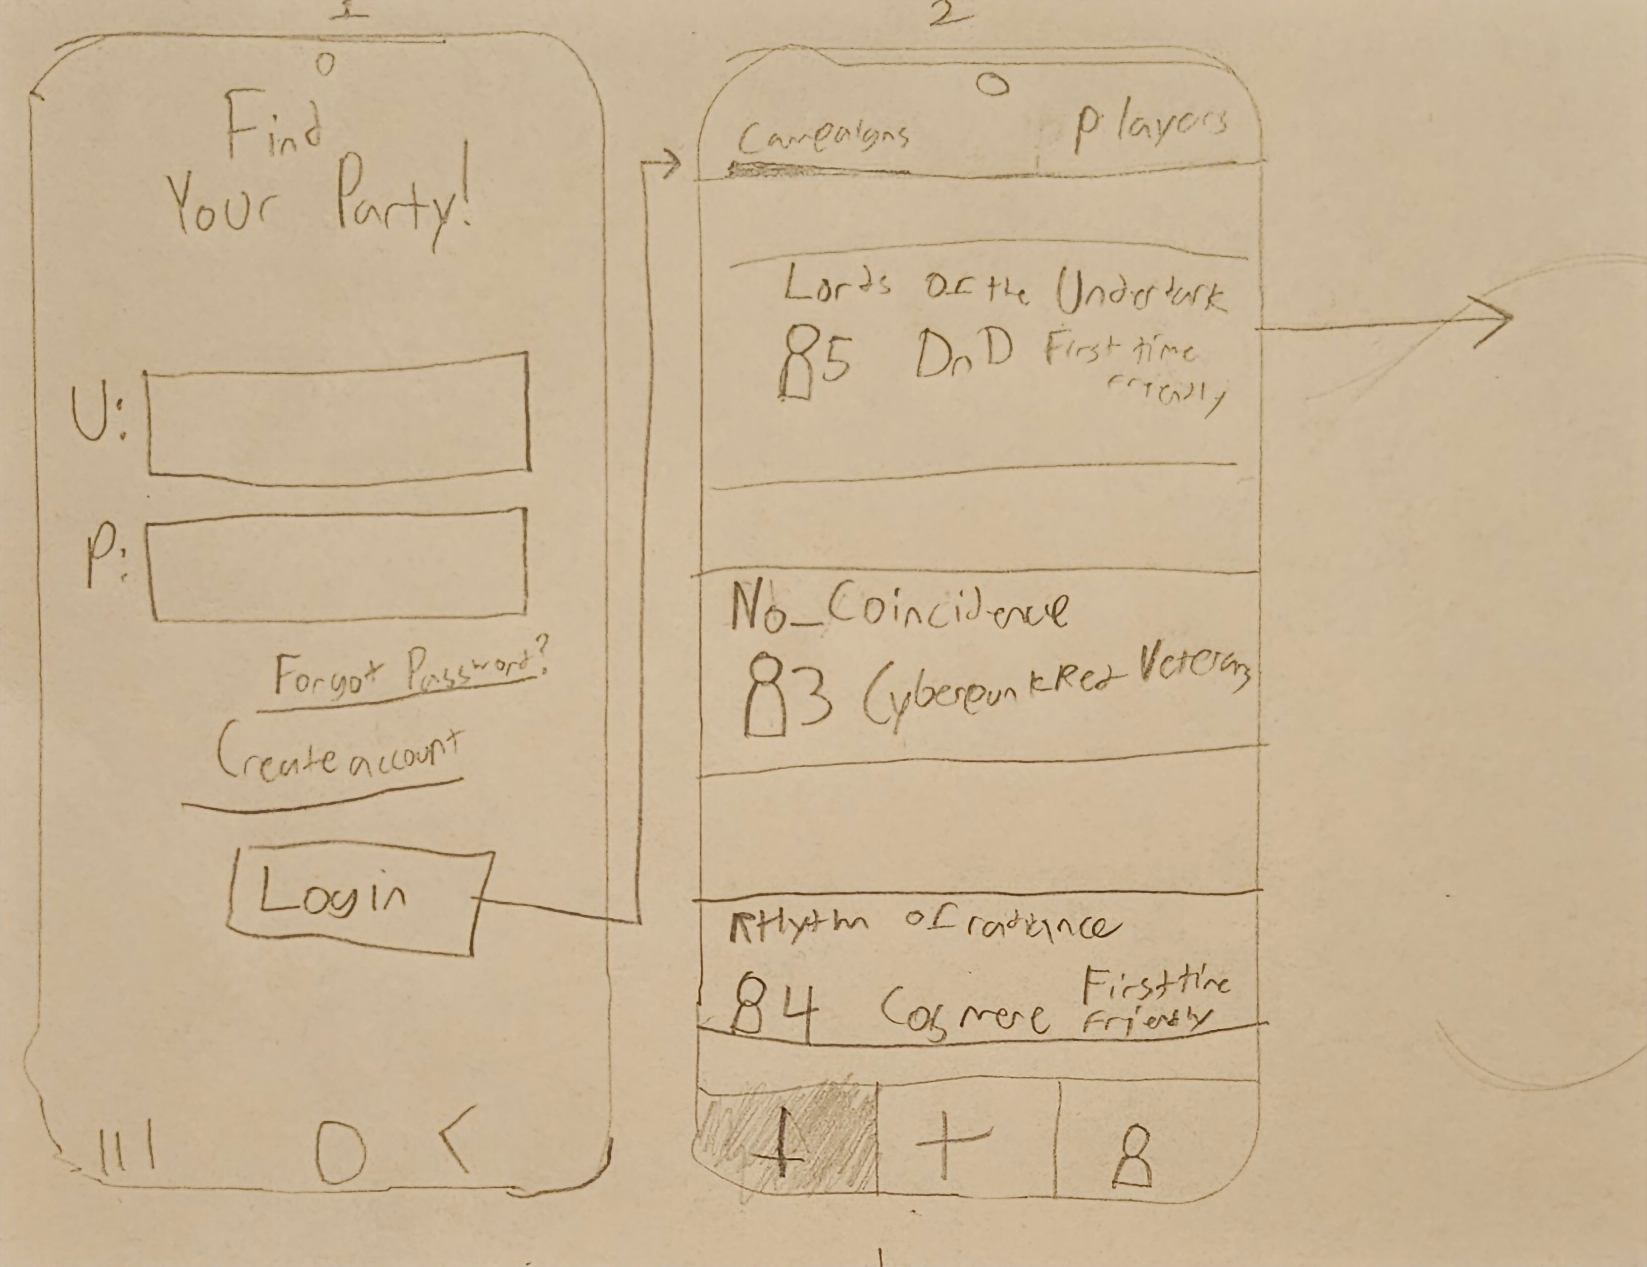 1
Find
Your Party!
U:
P:
Forgot Password?
Create account
Login
2
Campaigns
Players
Lords of the Underdark
5 DnD First time
friendly
No_Coincidence
3 Cyberpunk Red Veterans
Rhythm of radiance
4 Cosmere First time
friendly